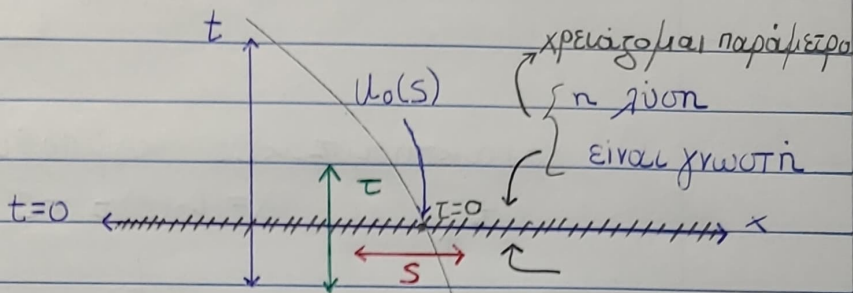 t
χρειάζομαι παράμετρο
u₀(s)
η λύση
είναι γνωστή
τ
t=0
τ=0
x
s